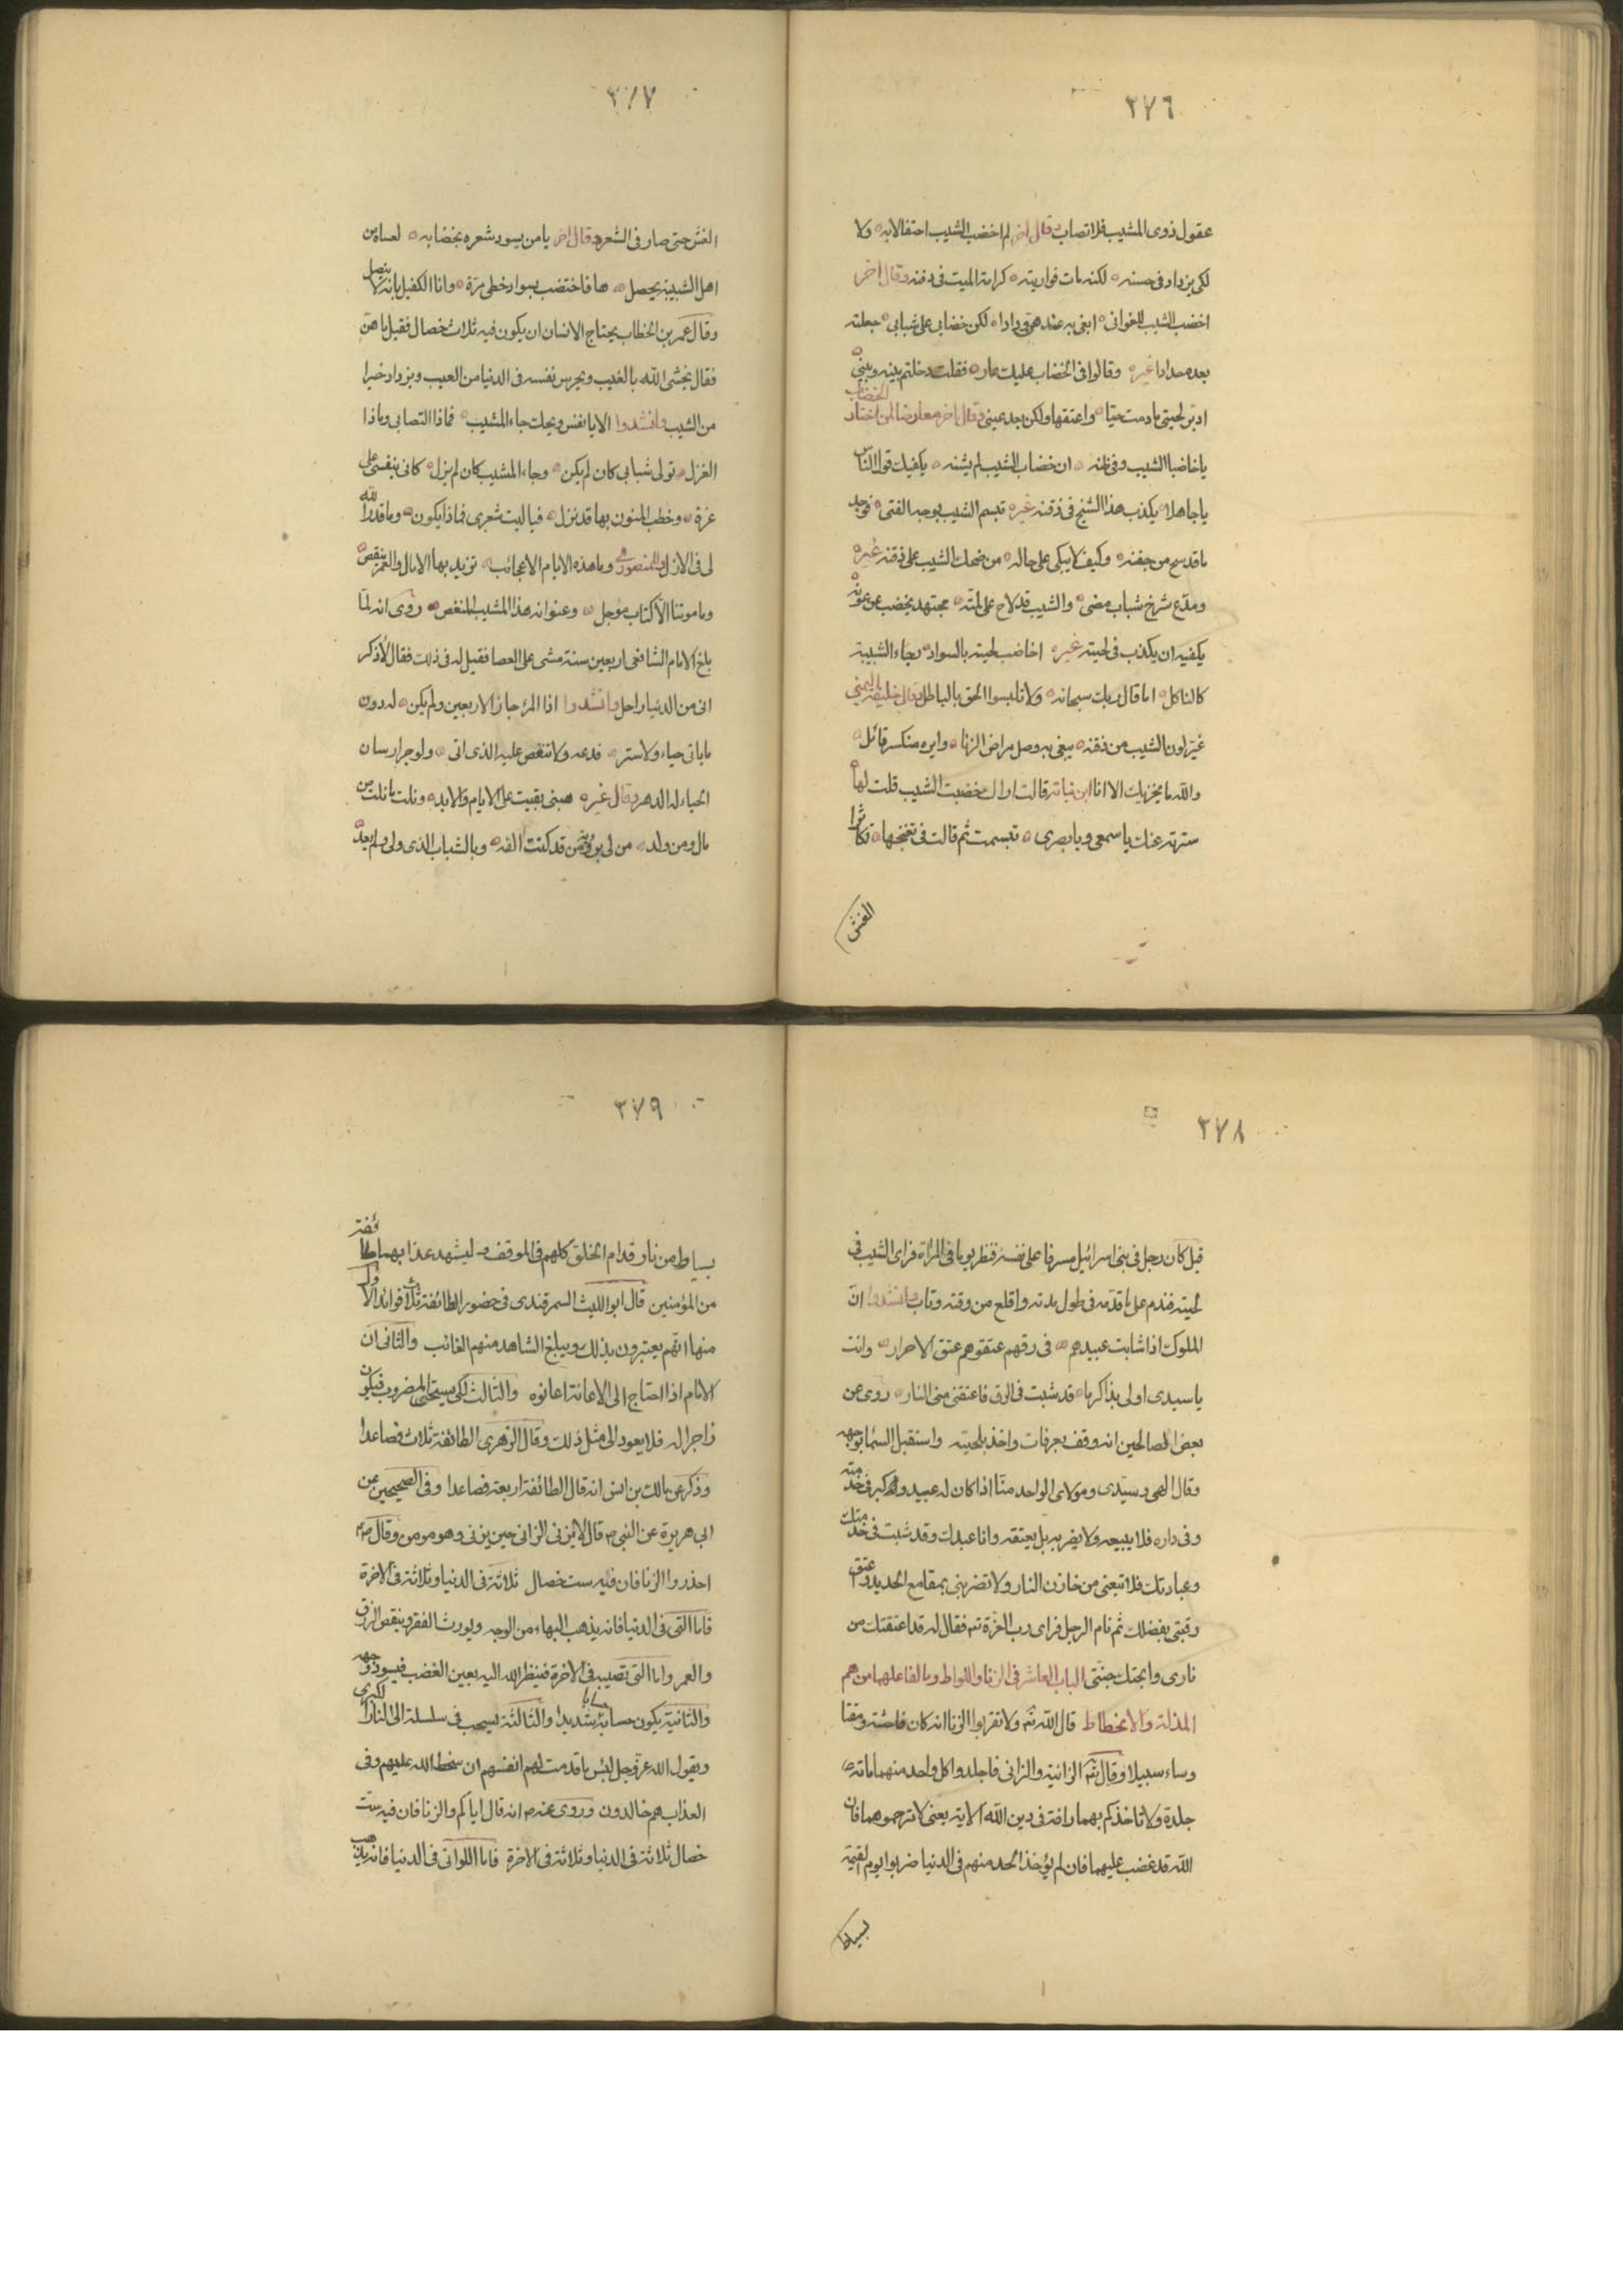 ٣٧٦
عقول ذوى المشيب فلا تصاب وقال اخر لم اخضب الشيب احتفالا به ولا
لكى يزداد فى حسنه لكنه مات فواريته كرامة الميت فى دفنه وقال اخر
اخضب الشيب للغوانى ابغى به عندهن ودادا لكن خضابى على شبابى جعلته
بعده حدادا غيره وقالوا فى الخضاب عليك عار فقلت دخلتم بينه وبينى
ادبر لحيتى ما دمت حيا واعتقها ولكن بعد عينى وقال اخر معارضا لمن اختار الخضاب
يا خاضبا الشيب وفى ظنه ان خضاب الشيب لم يشنه يكفيك قول الناس
يا جاهلا يكذب هذا الشيخ فى ذقنه غيره تبسم الشيب بوجه الفتى فوجد
ما قد سح من جفنه وكيف لا يبكى على حاله من ضحك الشيب على ذقنه غيره
ومدع شرخ شباب مضى والشيب قد لاح على لمته مجتهد يخضب عن عونه
يكفيه ان يكذب فى لحيته غيره اخاضب لحيته بالسواد رجاء الشبيبة
كالناكل اما قال ربك سبحانه ولا تلبسوا الحق بالباطل وقال خليفة اليمنى
غير لون الشيب من ذقنه يبغى به وصل مراض الزنا وايره منكسر قائل
والله ما يخزيك الا انا ابن نباته قالت اراك خضبت الشيب قلت لها
سترته عنك يا سمعى ويا بصرى تبسمت ثم قالت فى تغنجها تكاثر
الغش
٣٧٧
الغش حتى صار فى الشعر وقال اخر يا من يسود شعره بخضابه لعساه من
اهل الشبيبة يحصل ها فاختضب بسواد خطى مرة وانا الكفيل بانه لا ينصل
وقال عمر بن الخطاب يحتاج الانسان ان يكون فيه ثلاث خصال فقيل ما هن
فقال يخشى الله بالغيب ويحرس نفسه فى الدنيا من العيب ويزداد خيرا
من الشيب وانشدوا الا يا نفس ويحك جاء المشيب فماذا التصابى وماذا
الغزل تولى شبابى كان لم يكن وجاء المشيب كان لم يزل كانى بنفسى على
غرة وخطب المنون بها قد نزل فيا ليت شعرى فماذا يكون وما قدر الله
لى فى الازل المنصور وما هذه الايام الا عجائب تزيد بها الامال والعمر ينقص
وما موتنا الا كتاب مؤجل وعنوانه هذا المشيب المنغص روى انه لما
بلغ الامام الشافعى اربعين سنة مشى على العصا فقيل له فى ذلك فقال لاذكر
انى من الدنيا راحل وانشدوا اذا المرء جاز الاربعين ولم يكن له دون
ما ياتى حياء ولا ستر فدعه ولا تنغص عليه الذى اتى ولو جر ارسان
الحياء له الدهر وقال غيره هبنى بقيت على الايام والابد ونلت ما نلت من
مال ومن ولد من لى برؤية من قد كنت الفه وبالشباب الذى ولى ولم يعد
٣٧٨
قيل كان رجل فى بنى اسرائيل مسرفا على نفسه فنظر يوما فى المرآة فراى الشيب فى
لحيته فندم على ما قدمه فى طول مدته واقلع من وقته وتاب وانشدوا ان
الملوك اذا شابت عبيدهم فى رقهم عتقوهم عتق الاحرار وانت
يا سيدى اولى بذا كرما قد شبت فى الرق فاعتقنى من النار روى عن
بعض الصالحين انه وقف بعرفات واخذ بلحيته واستقبل السما بوجهه
وقال الهى وسيدى ومولاى الواحد منا اذا كان له عبيد وكبر فى خدمته
وفى داره فلا يبيعه ولا يضربه بل يعتقه وانا عبدك وقد شبت فى خدمتك
وعبادتك فلا تبعنى من خازن النار ولا تضربنى بمقامع الحديد واعتق
رقبتى بفضلك ثم نام الرجل فراى رب العزة تع فقال له قد اعتقتك من
نارى وابحتك جنتى الباب العاشر فى الزنا واللواط وما لفاعلهما من هم
المذلة والانحطاط قال الله تع ولا تقربوا الزنا انه كان فاحشة ومقتا
وساء سبيلا وقال تع الزانية والزانى فاجلدوا كل واحد منهما مائة
جلدة ولا تاخذكم بهما رافة فى دين الله الاية يعنى لا ترحموهما فان
الله قد غضب عليهما فان لم يؤخذ الحد منهم فى الدنيا ضربوا يوم القيمة
بسياط
٣٧٩
بسياط من نار قدام الخلق كلهم فى الموقف وليشهد عذابهما طائفة
من المؤمنين قال ابو الليث السمرقندى فى حضور الطائفة ثلاث فوائد الاول
منها انهم يعتبرون بذلك ويبلغ الشاهد منهم الغائب والثانى ان
الامام اذا احتاج الى الاعانة اعانوه والثالث لكى يستحى المضروب فيكون
زاجرا له فلا يعود الى مثل ذلك وقال الزهرى الطائفة ثلاث فصاعدا
وذكر عن مالك بن انس انه قال الطائفة اربعة فصاعدا وفى الصحيحين عن
ابى هريرة عن النبى ص قال لا يزنى الزانى حين يزنى وهو مومن وقال صلعم
احذروا الزنا فان فيه ست خصال ثلاثة فى الدنيا وثلاثة فى الاخرة
فاما التى فى الدنيا فانه يذهب البهاء من الوجه ويورث الفقر وينقص الرزق
والعمر واما التى تصيبه فى الاخرة فينظر الله اليه بعين الغضب فيسود وجهه
والثانية يكون حسابه شديدا والثالثة يسحب فى سلسلة الى النار الكبرى
ويقول الله عز وجل لبئس ما قدمت لهم انفسهم ان سخط الله عليهم وفى
العذاب هم خالدون وروى عنه م انه قال اياكم والزنا فان فيه ست
خصال ثلاثة فى الدنيا وثلاثة فى الاخرة فاما اللواتى فى الدنيا فانه يذهب